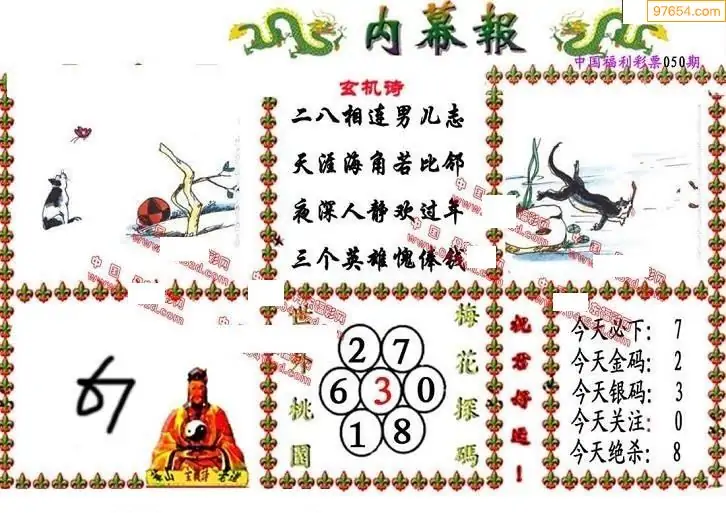 97654.com
内幕報
中国福利彩票050期
玄机诗
二八相连男儿志
天涯海角若比邻
夜深人静欢过年
三个英雄愧俸钱
世外桃園
2 7
6 3 0
1 8
梅花探碼
祝君好运！
今天必下: 7
今天金码: 2
今天银码: 3
今天关注: 0
今天绝杀: 8